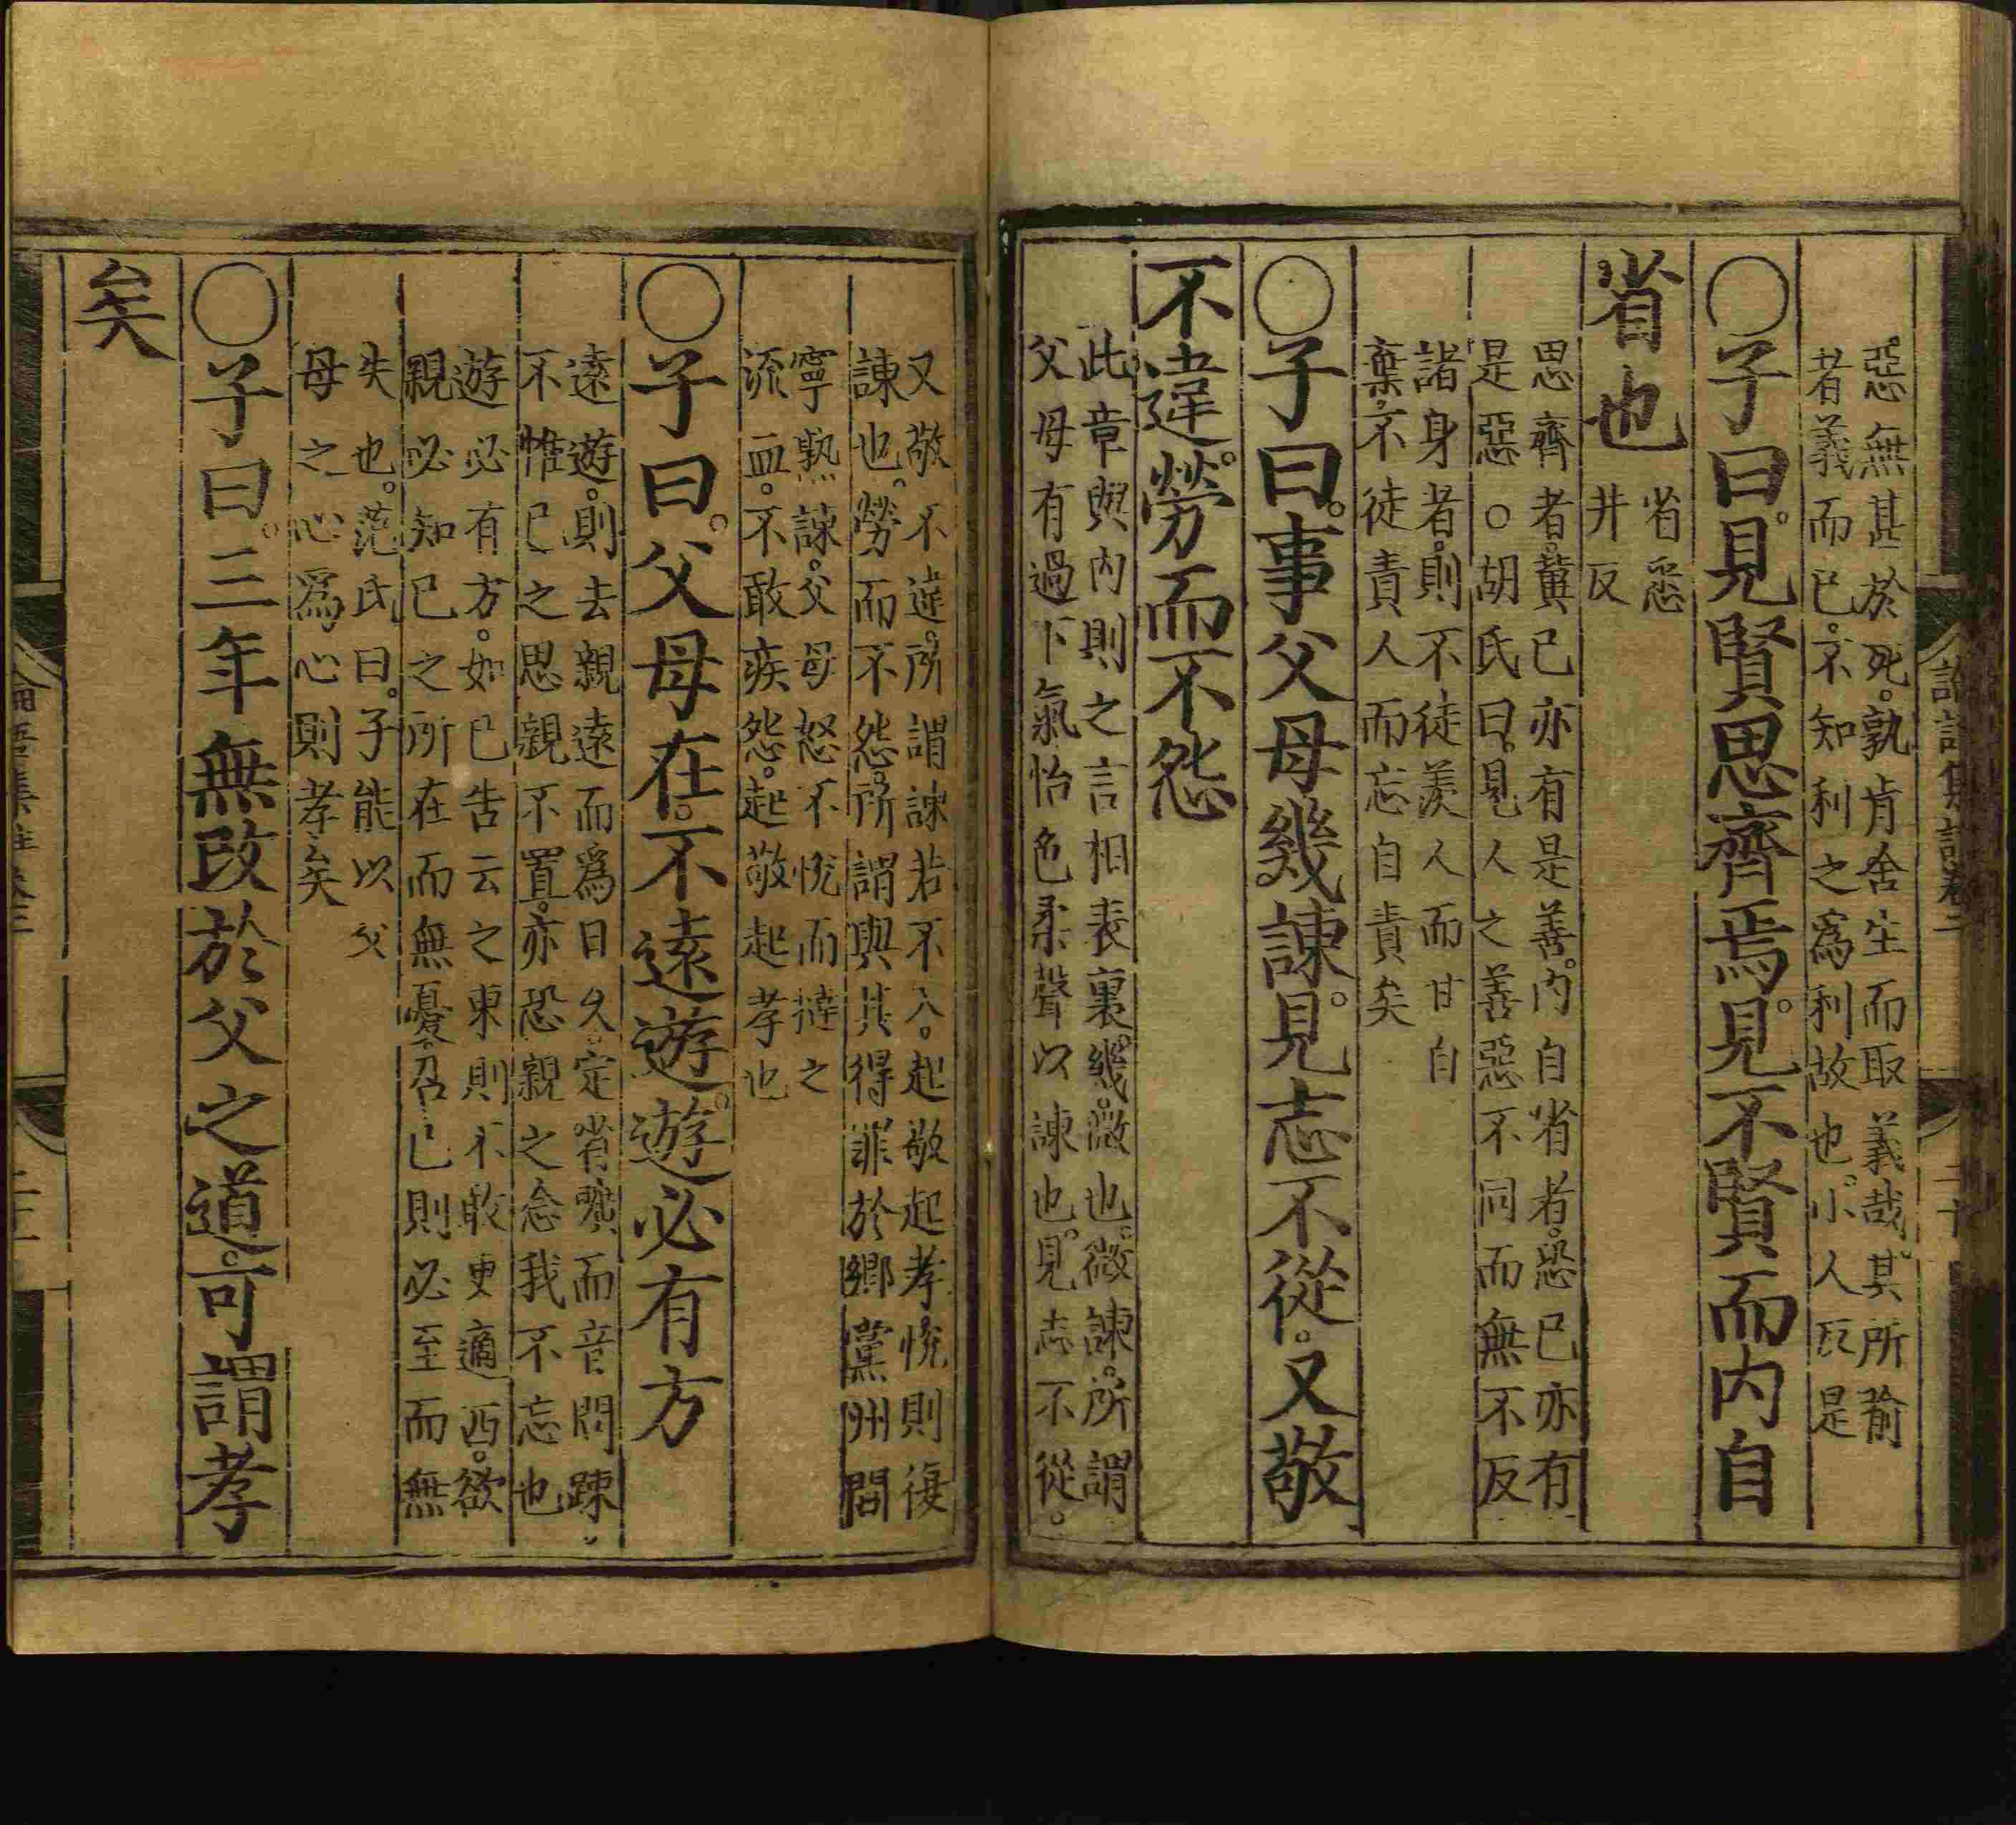 惡無甚於死。孰肯舍生而取義哉。其所喻
者義而已。不知利之爲利故也。小人反是
○子曰。見賢思齊焉。見不賢而內自
省也
省悉
井反
思齊者。冀己亦有是善。內自省者。恐己亦有
是惡○胡氏曰。見人之善惡不同而無不反
諸身者。則不徒羨人而甘自
棄。不徒責人而忘自責矣
○子曰。事父母幾諫。見志不從。又敬
不違。勞而不怨
此章與內則之言相表裏。幾。微也。微諫。所謂
父母有過下氣怡色柔聲以諫也。見志不從。
又敬不違。所謂諫若不入。起敬起孝。悅則復
諫也。勞而不怨。所謂與其得罪於鄉黨州閭
寧熟諫。父母怒不悅而撻之
流血。不敢疾怨。起敬起孝也
○子曰。父母在。不遠遊。遊必有方
遠遊。則去親遠而爲日久。定省曠而音問踈。
不惟己之思親不置。亦恐親之念我不忘也
遊必有方。如己告云之東則不敢更適西。欲
親必知己之所在而無憂。召己則必至而無
失也。范氏曰。子能以父
母之心爲心則孝矣
○子曰。三年無改於父之道。可謂孝
矣